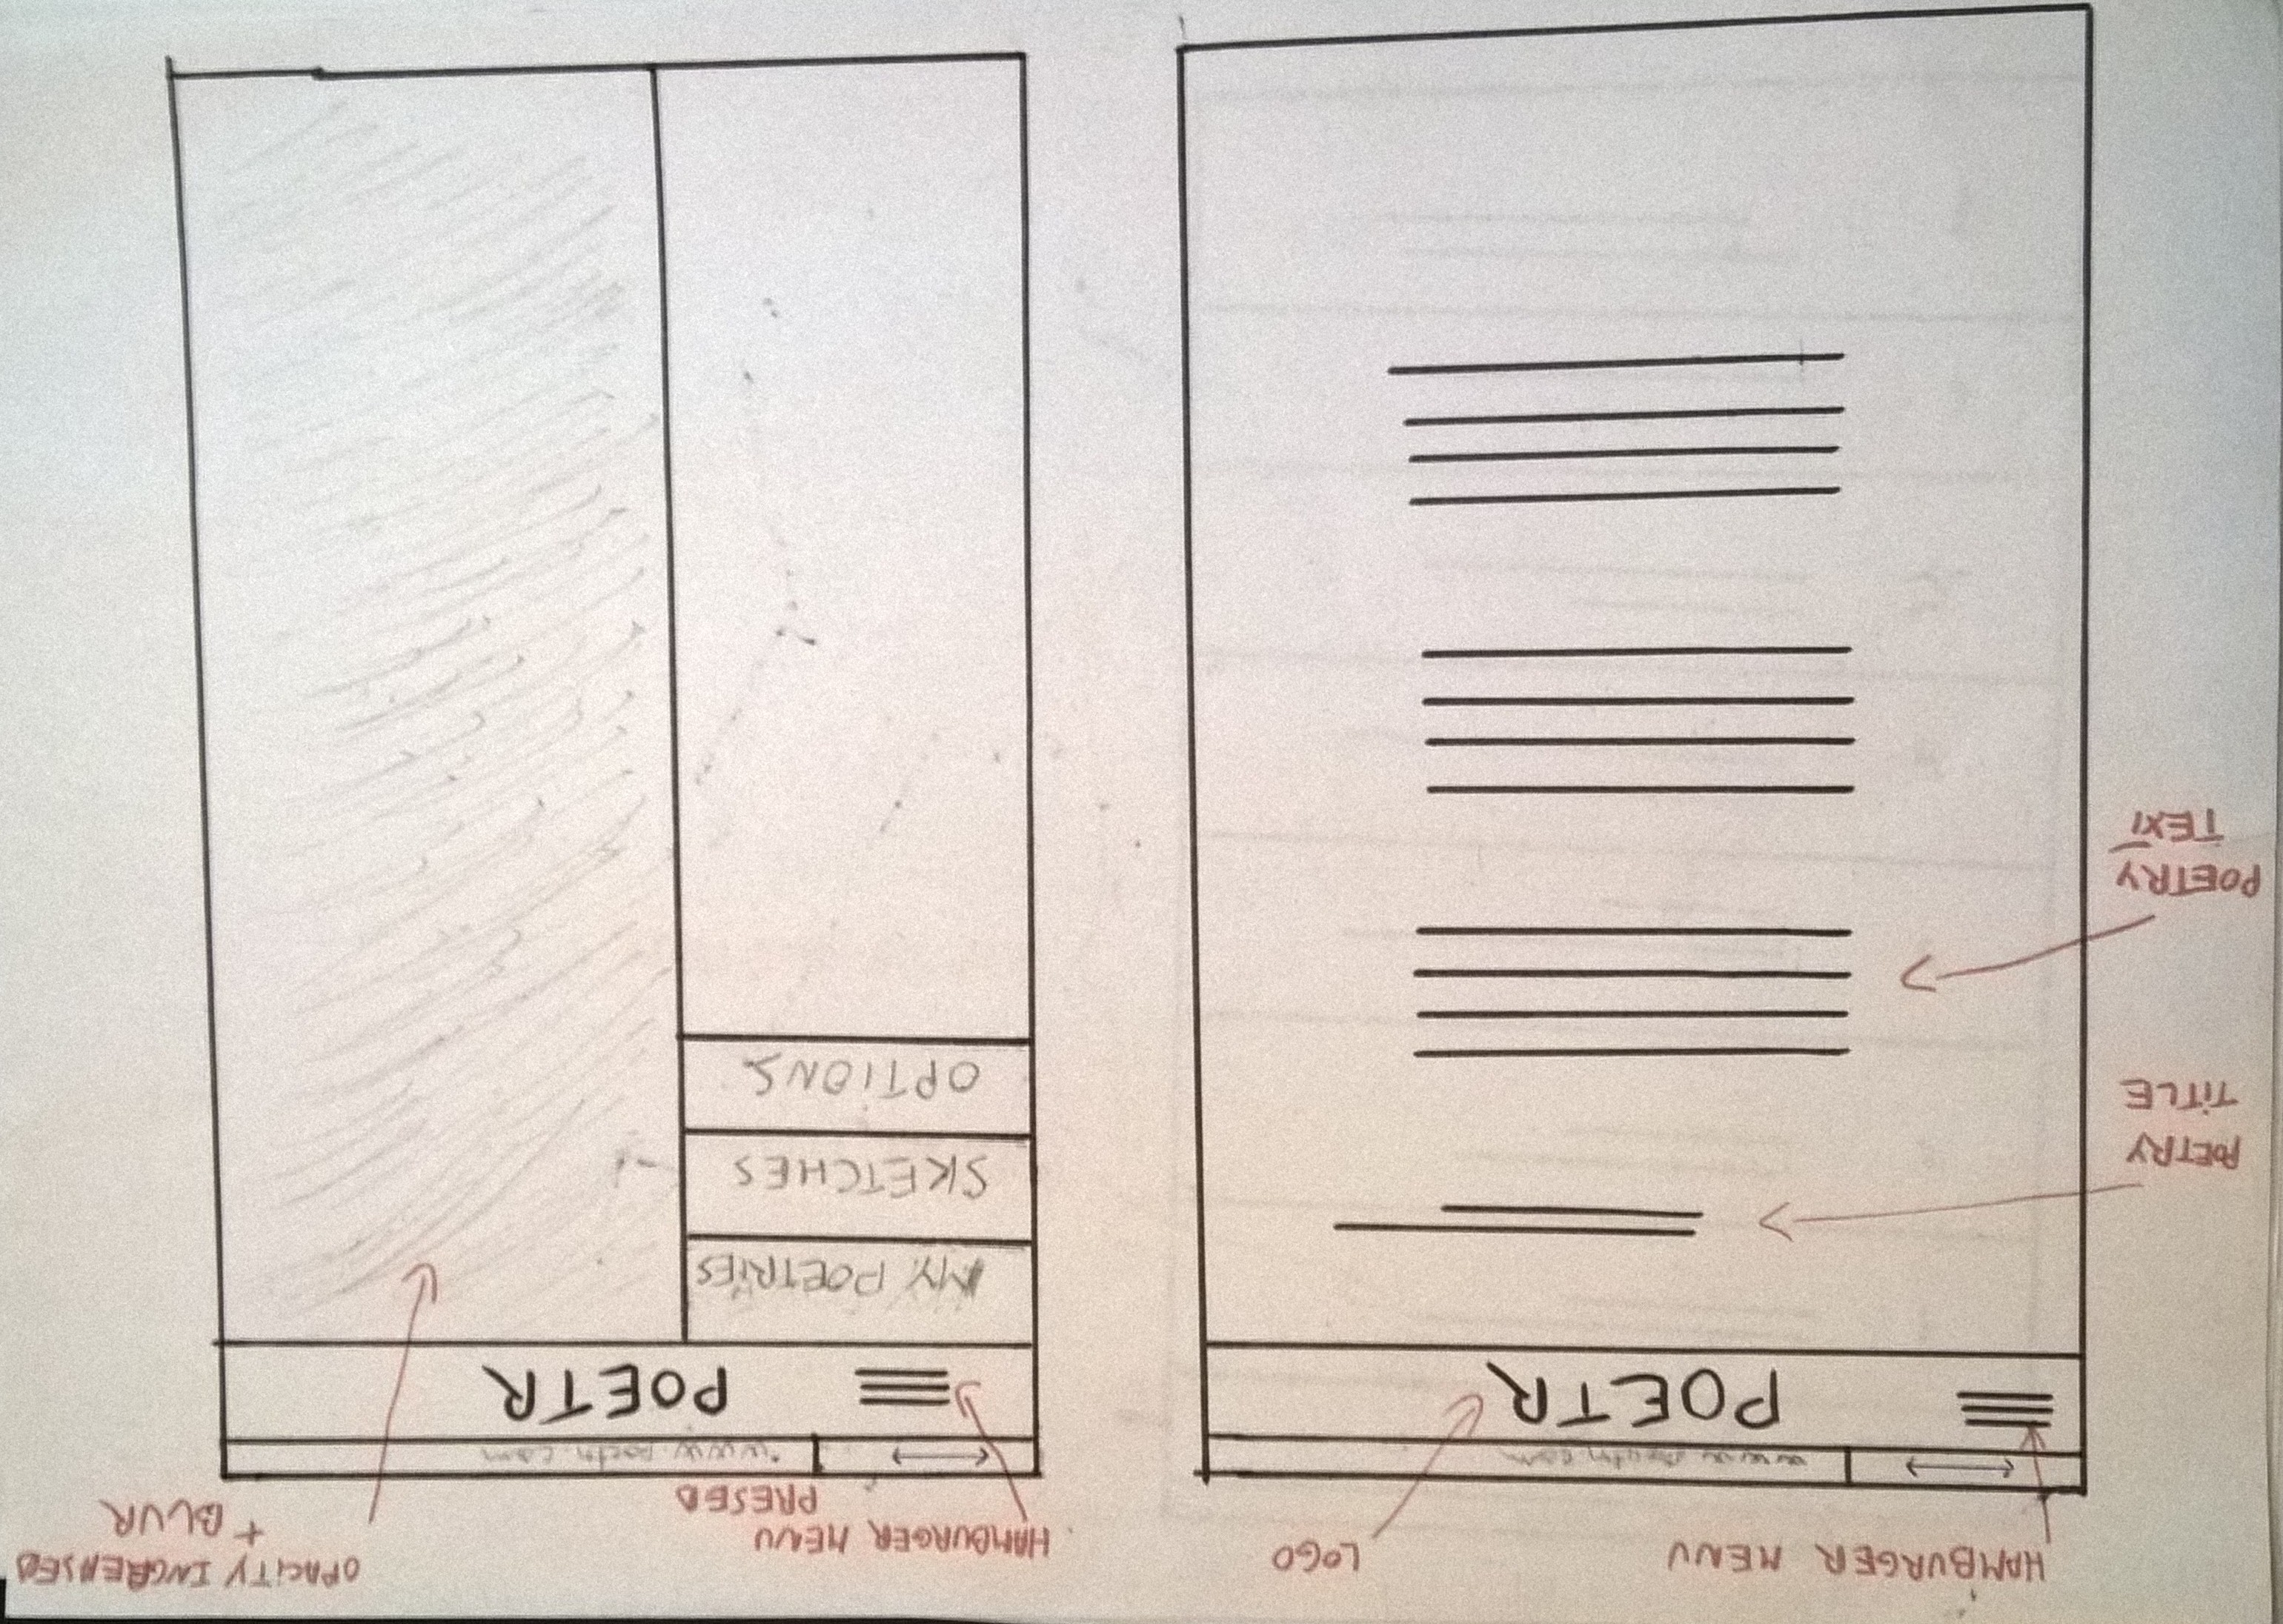 HAMBURGER MENU
LOGO
POETR
POETRY
TITLE
POETRY
TEXT
HAMBURGER MENU
PRESED
OPACITY INCREASED
+ BLUR
www.poetr.com
POETR
MY POETRIES
SKETCHES
OPTIONS